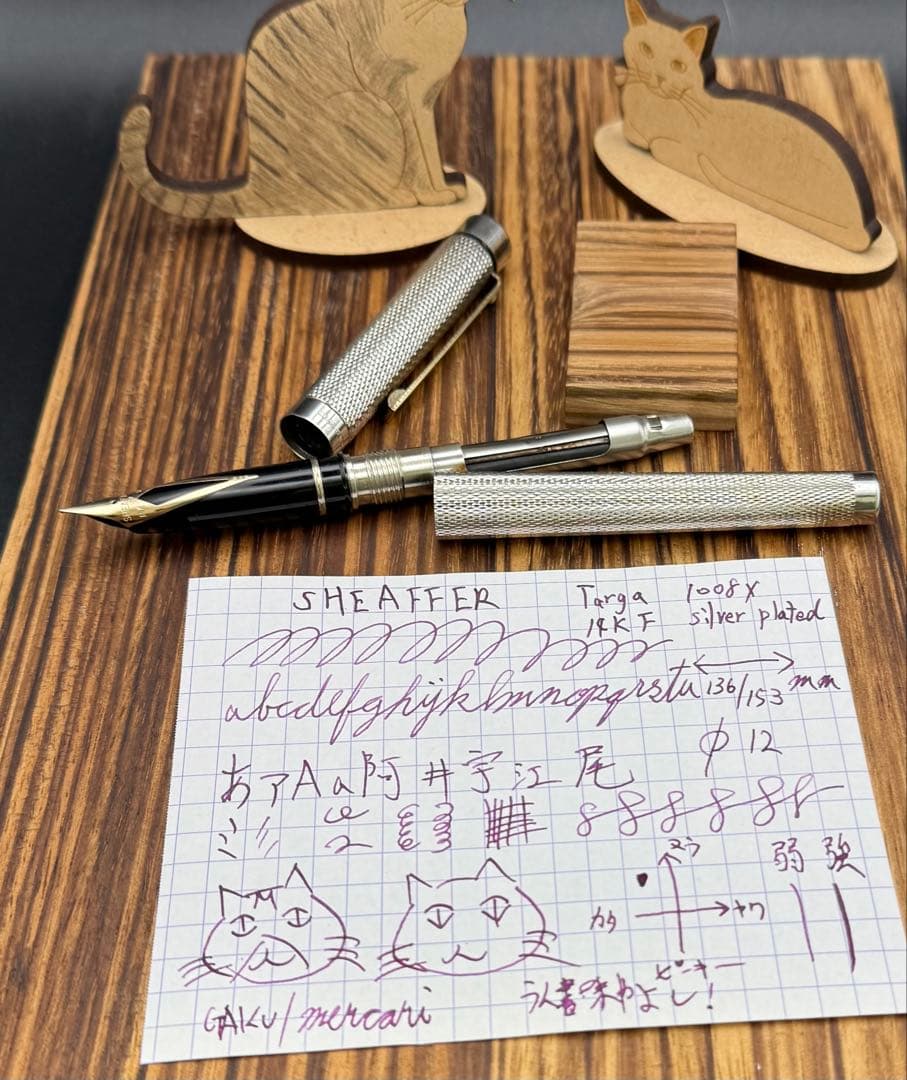 SHEAFFER Targa 1008X
14K F silver plated
abcdefghijklmnopqrstu 136/153 mm
φ 12
あアAa阿井宇江尾
弱 強
ヌラ
カタ ヤワ
ビシャー
GAKU/mercari 書味やよし!